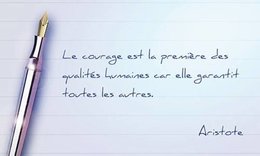 Le courage est la première des
qualités humaines car elle garantit
toutes les autres.
Aristote